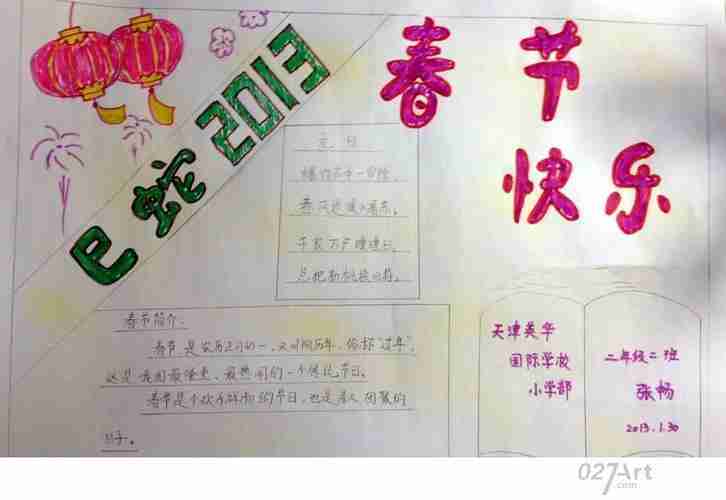 巳蛇2013
春节
快乐
元日
爆竹声中一岁除，
春风送暖入屠苏。
千家万户曈曈日，
总把新桃换旧符。
春节简介：
春节是农历正月初一，又叫阴历年，俗称“过年”，
这是我国最隆重、最热闹的一个传统节日。
春节是个欢乐祥和的节日，也是亲人团聚的
日子。
天津英华
国际学校
小学部
二年级二班
张畅
2013.1.30
027Art
.com